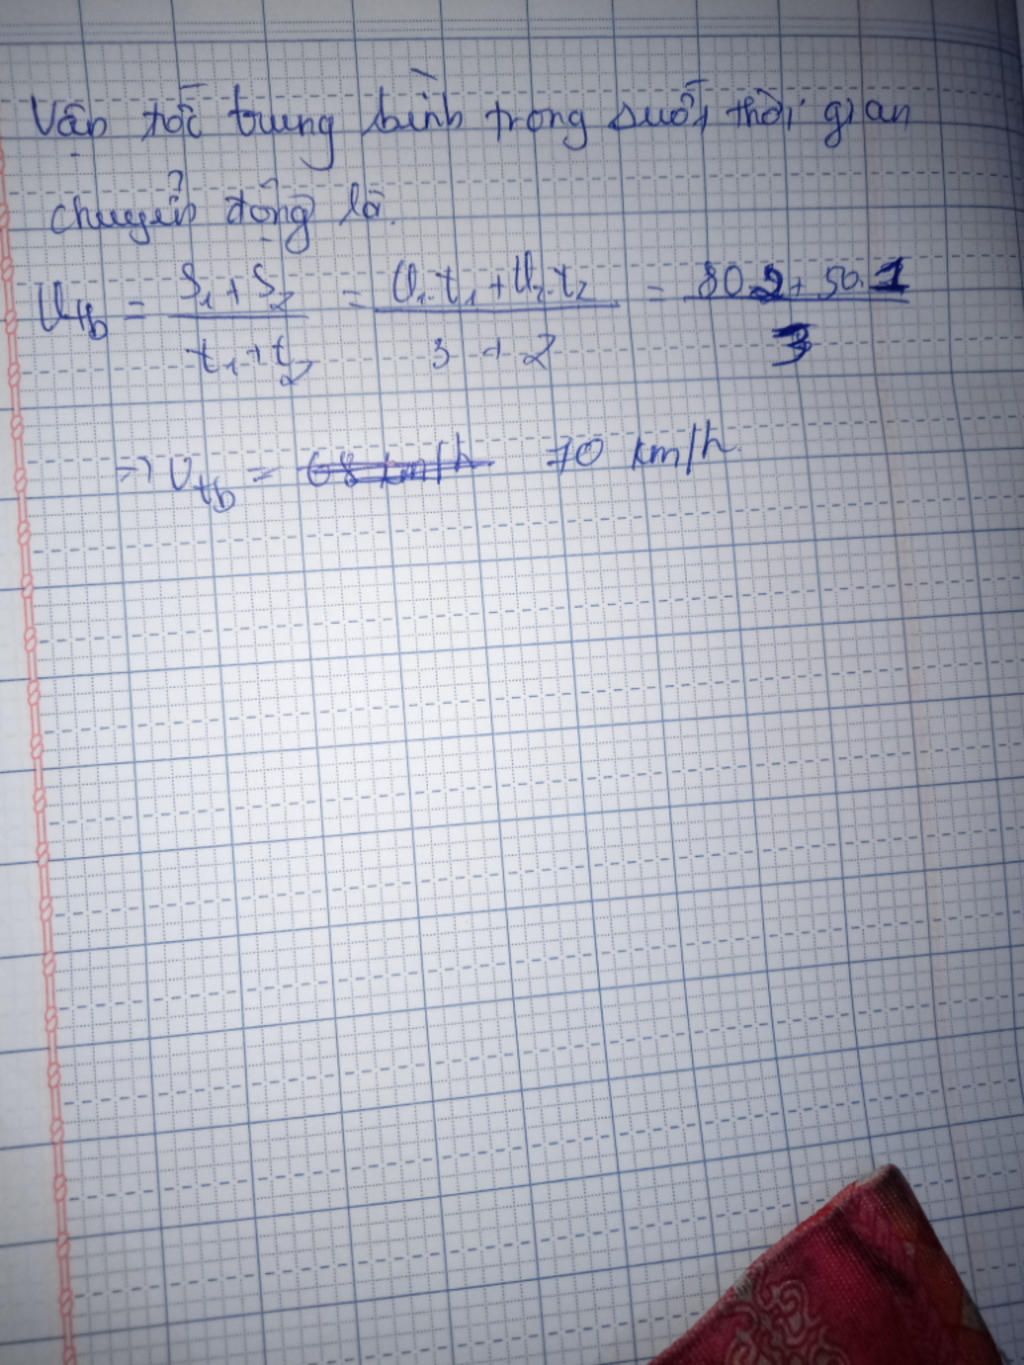 Vận tốc trung bình trong suốt thời gian
chuyển động là.
Vtb = S1 + S2 / t1 + t2 = V1.t1 + V2.t2 / 3 + 2 = 80.2 + 50.1 / 3
=> Vtb = 68 km/h 70 km/h.